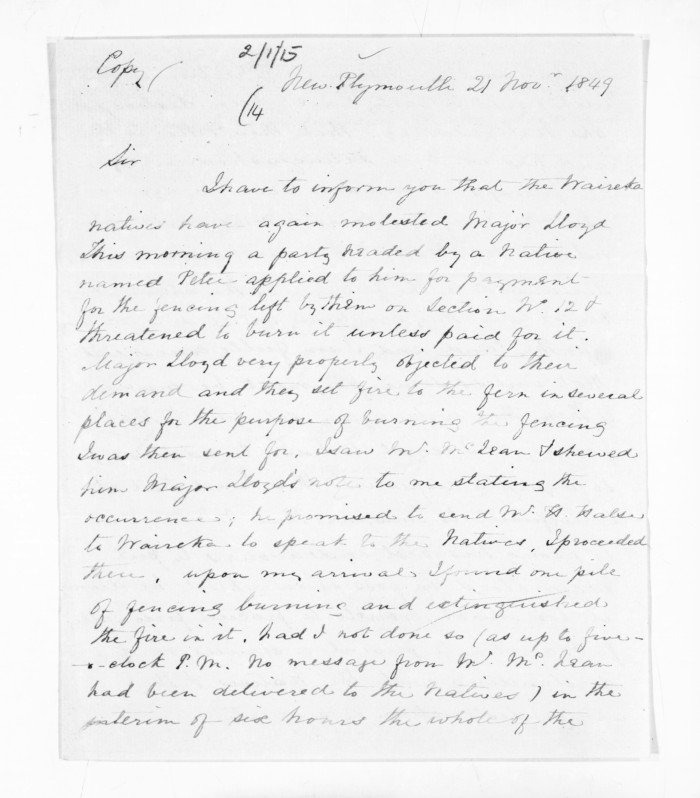 2/1/15
Copy/
New Plymouth 21 Novr. 1849
(14
Sir
I have to inform you that the Waireka
natives have again molested Major Lloyd
This morning a party headed by a Native
named Peter applied to him for payment
for the fencing left by them on Section No. 12 &
threatened to burn it unless paid for it.
Major Lloyd very properly objected to their
demand and they set fire to the fern in several
places for the purpose of burning the fencing
I was then sent for. I saw Mr. McLean & shewed
him Major Lloyd's note to me stating the
occurrences; he promised to send Mr. H. Halse
to Waireka to speak to the Natives. I proceeded
there, upon my arrival I found one pile
of fencing burning and extinguished
the fire in it. had I not done so (as up to five-
o-clock P.M. No message from Mr. McLean
had been delivered to the Natives) in the
interim of six hours the whole of the